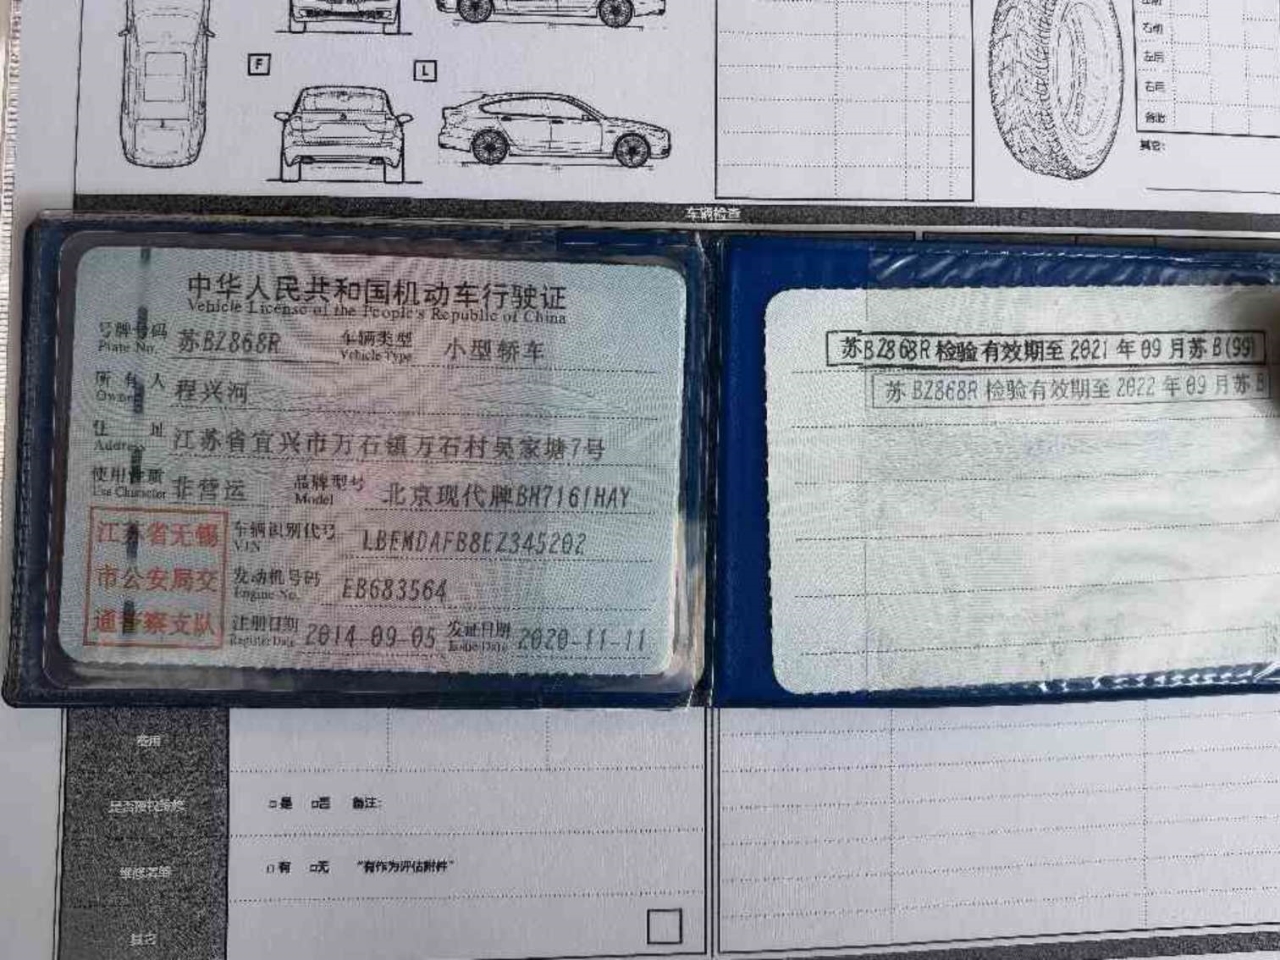 F
L
右前
左后
右后
备胎
其它:
车辆检查
中华人民共和国机动车行驶证
Vehicle License of the People's Republic of China
号牌号码 苏BZ868R 车辆类型 小型轿车
Plate No. Vehicle Type
所有人 程兴河
Owner
住址 江苏省宜兴市万石镇万石村吴家塘7号
Address
使用性质 非营运 品牌型号 北京现代牌BH7161HAY
Use Character Model
江苏省无锡
市公安局交
通警察支队
车辆识别代号 LBEMDAFB8EZ345202
VIN
发动机号码 EB683564
Engine No.
注册日期 2014-09-05 发证日期 2020-11-11
Register Date Issue Date
苏BZ868R检验有效期至2021年09月苏B(99)
苏BZ868R检验有效期至2022年09月苏B
费用
□是 □否 备注:
维修表单
□有 □无 "有作为评估附件"
其它